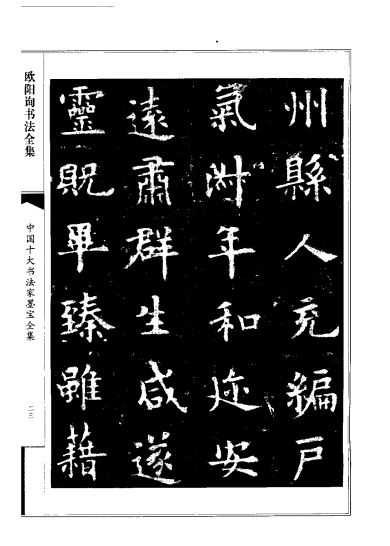 州縣人充編戶
氣淑年和迩安
遠肅群生咸遂
靈貺畢臻雖藉
欧阳询书法全集
中国十大书法家墨宝全集
二三